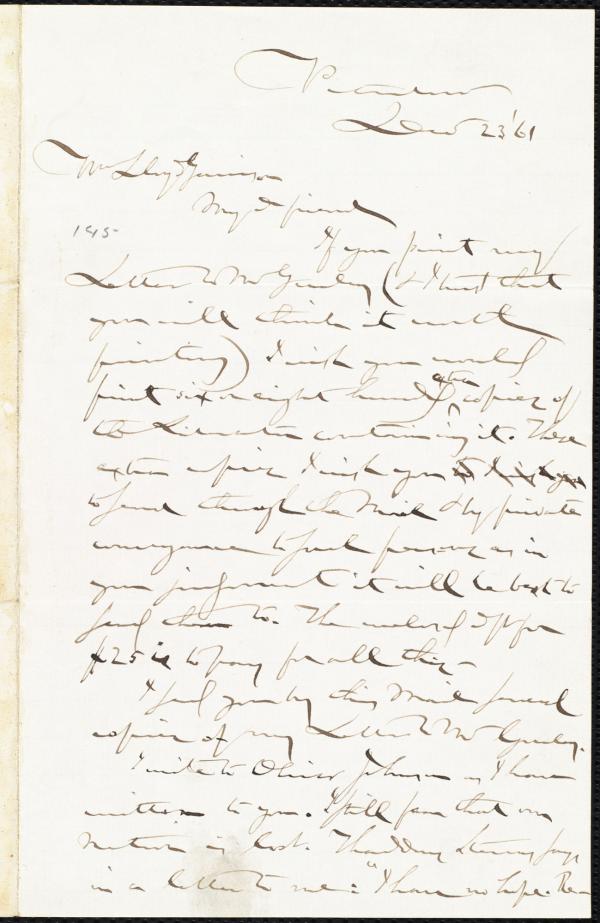 Peterboro
Dec 23 '61
Wm Lloyd Garrison
My d friend
145
If you print my
Letter to Mr Greeley (& I trust that
you will think it worth
printing) I wish you would
print six or eight hund extra copies of
the Liberator containing it. These
extra copies I wish you
to send through the Mail & by private
conveyance to such persons as in
your judgment it will be best to
send them to. The enclosed dft for
$25 is to pay for all this -
I send you by this Mail several
copies of my Letter to Mr Greeley.
I write to Oliver Johnson as I have
written to you. I still fear that our
Nation is lost. Thaddeus Stevens says
in a letter to me: "I have no hope.